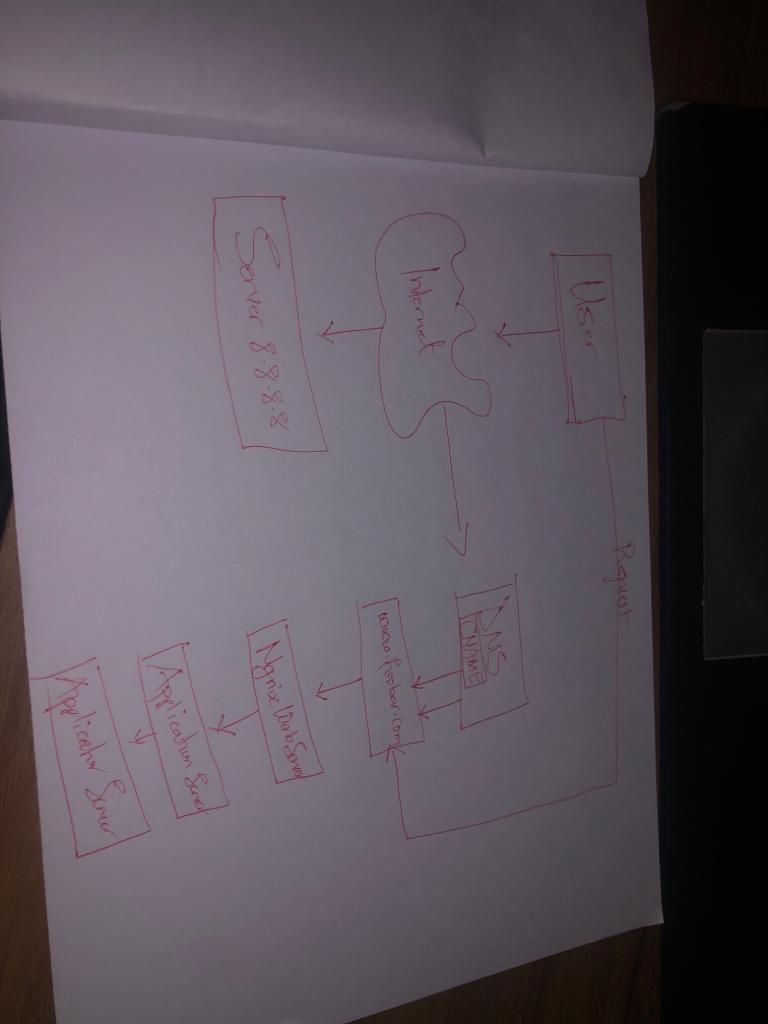 User
Request
Internet
Server 8.8.8.8
DNS
CNAME
www.foobar.com
Nginix Web Server
Application Server
Application Server